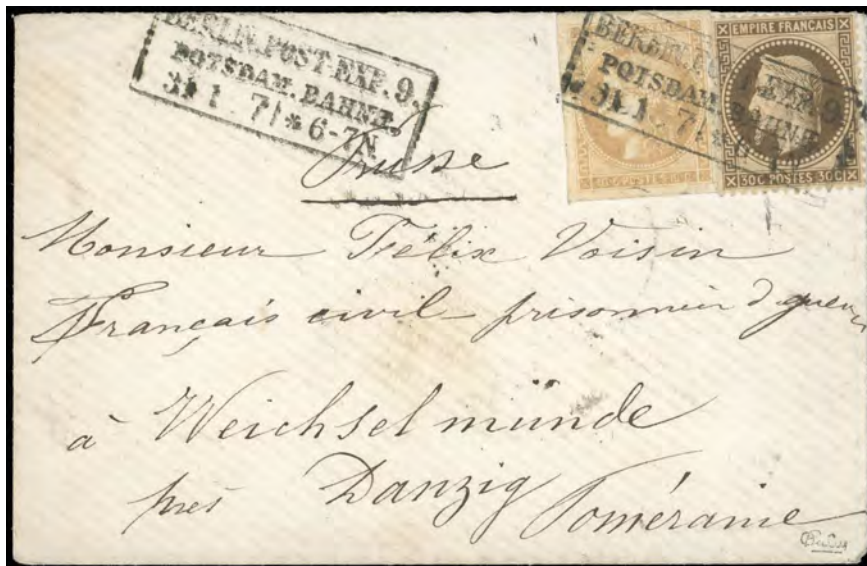 BERLIN, POST-EXP. 9.
POTSDAM. BAHNH.
31 1 71 * 6-7N
BERLIN, POST-EXP. 9.
POTSDAM. BAHNH.
31 1 71 *
EMPIRE FRANÇAIS
30C POSTES 30C
Prusse
Monsieur Félix Voisin
Français civil - prisonnier d guerre
à Weichselmünde
près Danzig Poméranie